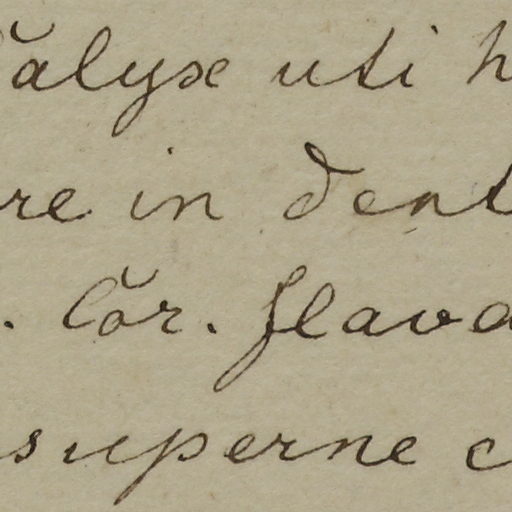 Călyx uti h
re in dent
. Cŏr. flava
superne c